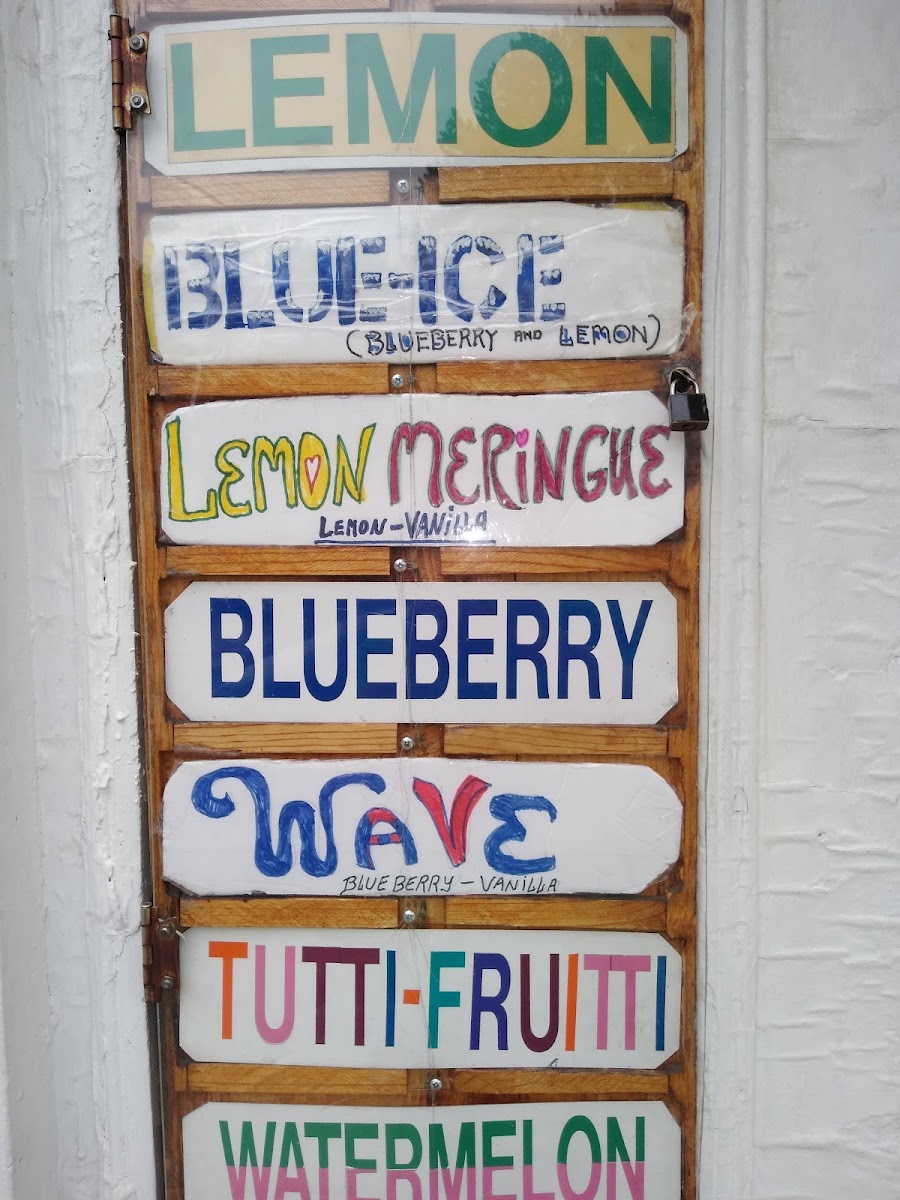 LEMON
BLUE-ICE
(BLUEBERRY AND LEMON)
LEMON MERINGUE
LEMON-VANILLA
BLUEBERRY
WAVE
BLUEBERRY-VANILLA
TUTTI-FRUITTI
WATERMELON